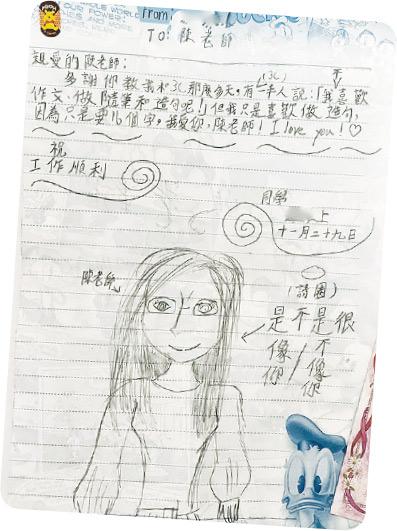 From:
TO: 陳老師
親愛的陳老師:
多謝你教我和3C那麼多天,有(3C)人說:「我喜歡
作文、做隨筆和造句呢!」但我只是喜歡做造句,
因為只是要16個字。我愛你,陳老師! I love you! ♡
祝
工作順利
同學
上
十一月二十九日
陳老師
(請圈)
是不是很
像你/不像你